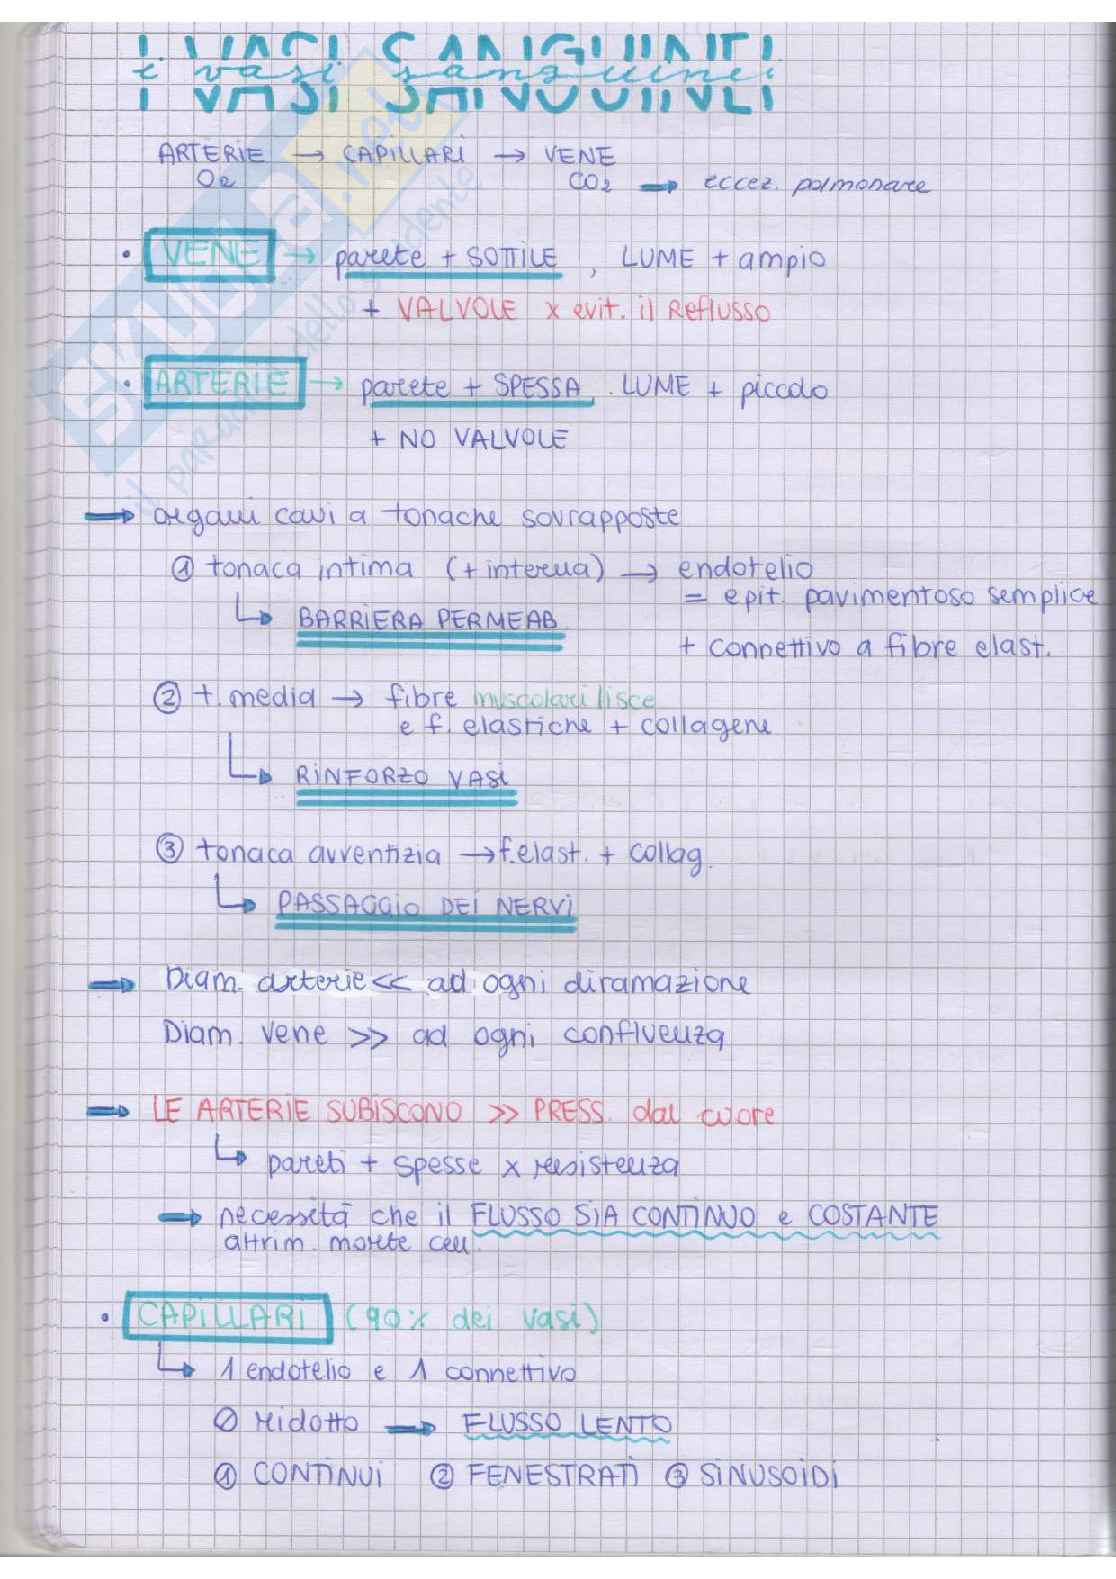 I VASI SANGUIGNI
i vasi sanguigni
ARTERIE → CAPILLARI → VENE
O2 CO2 → eccez. polmonare
• VENE → parete + SOTTILE , LUME + ampio
+ VALVOLE x evit. il Reflusso
• ARTERIE → parete + SPESSA . LUME + piccolo
+ NO VALVOLE
→ organi cavi a tonache sovrapposte
① tonaca intima (+ interna) → endotelio
= epit. pavimentoso semplice
↳ BARRIERA PERMEAB.
+ connettivo a fibre elast.
② t. media → fibre muscolari lisce
e f. elastiche + collagene
↳ RINFORZO VASI
③ tonaca avventizia → f.elast. + collag.
↳ PASSAGGIO DEI NERVI
→ Diam. arterie << ad ogni diramazione
Diam. vene >> ad ogni confluenza
→ LE ARTERIE SUBISCONO >> PRESS. dal cuore
↳ pareti + spesse x resistenza
→ necessità che il FLUSSO SIA CONTINUO e COSTANTE
altrim. morte cell.
• CAPILLARI (90% dei vasi)
↳ 1 endotelio e 1 connettivo
∅ ridotto → FLUSSO LENTO
① CONTINUI ② FENESTRATI ③ SINUSOIDI